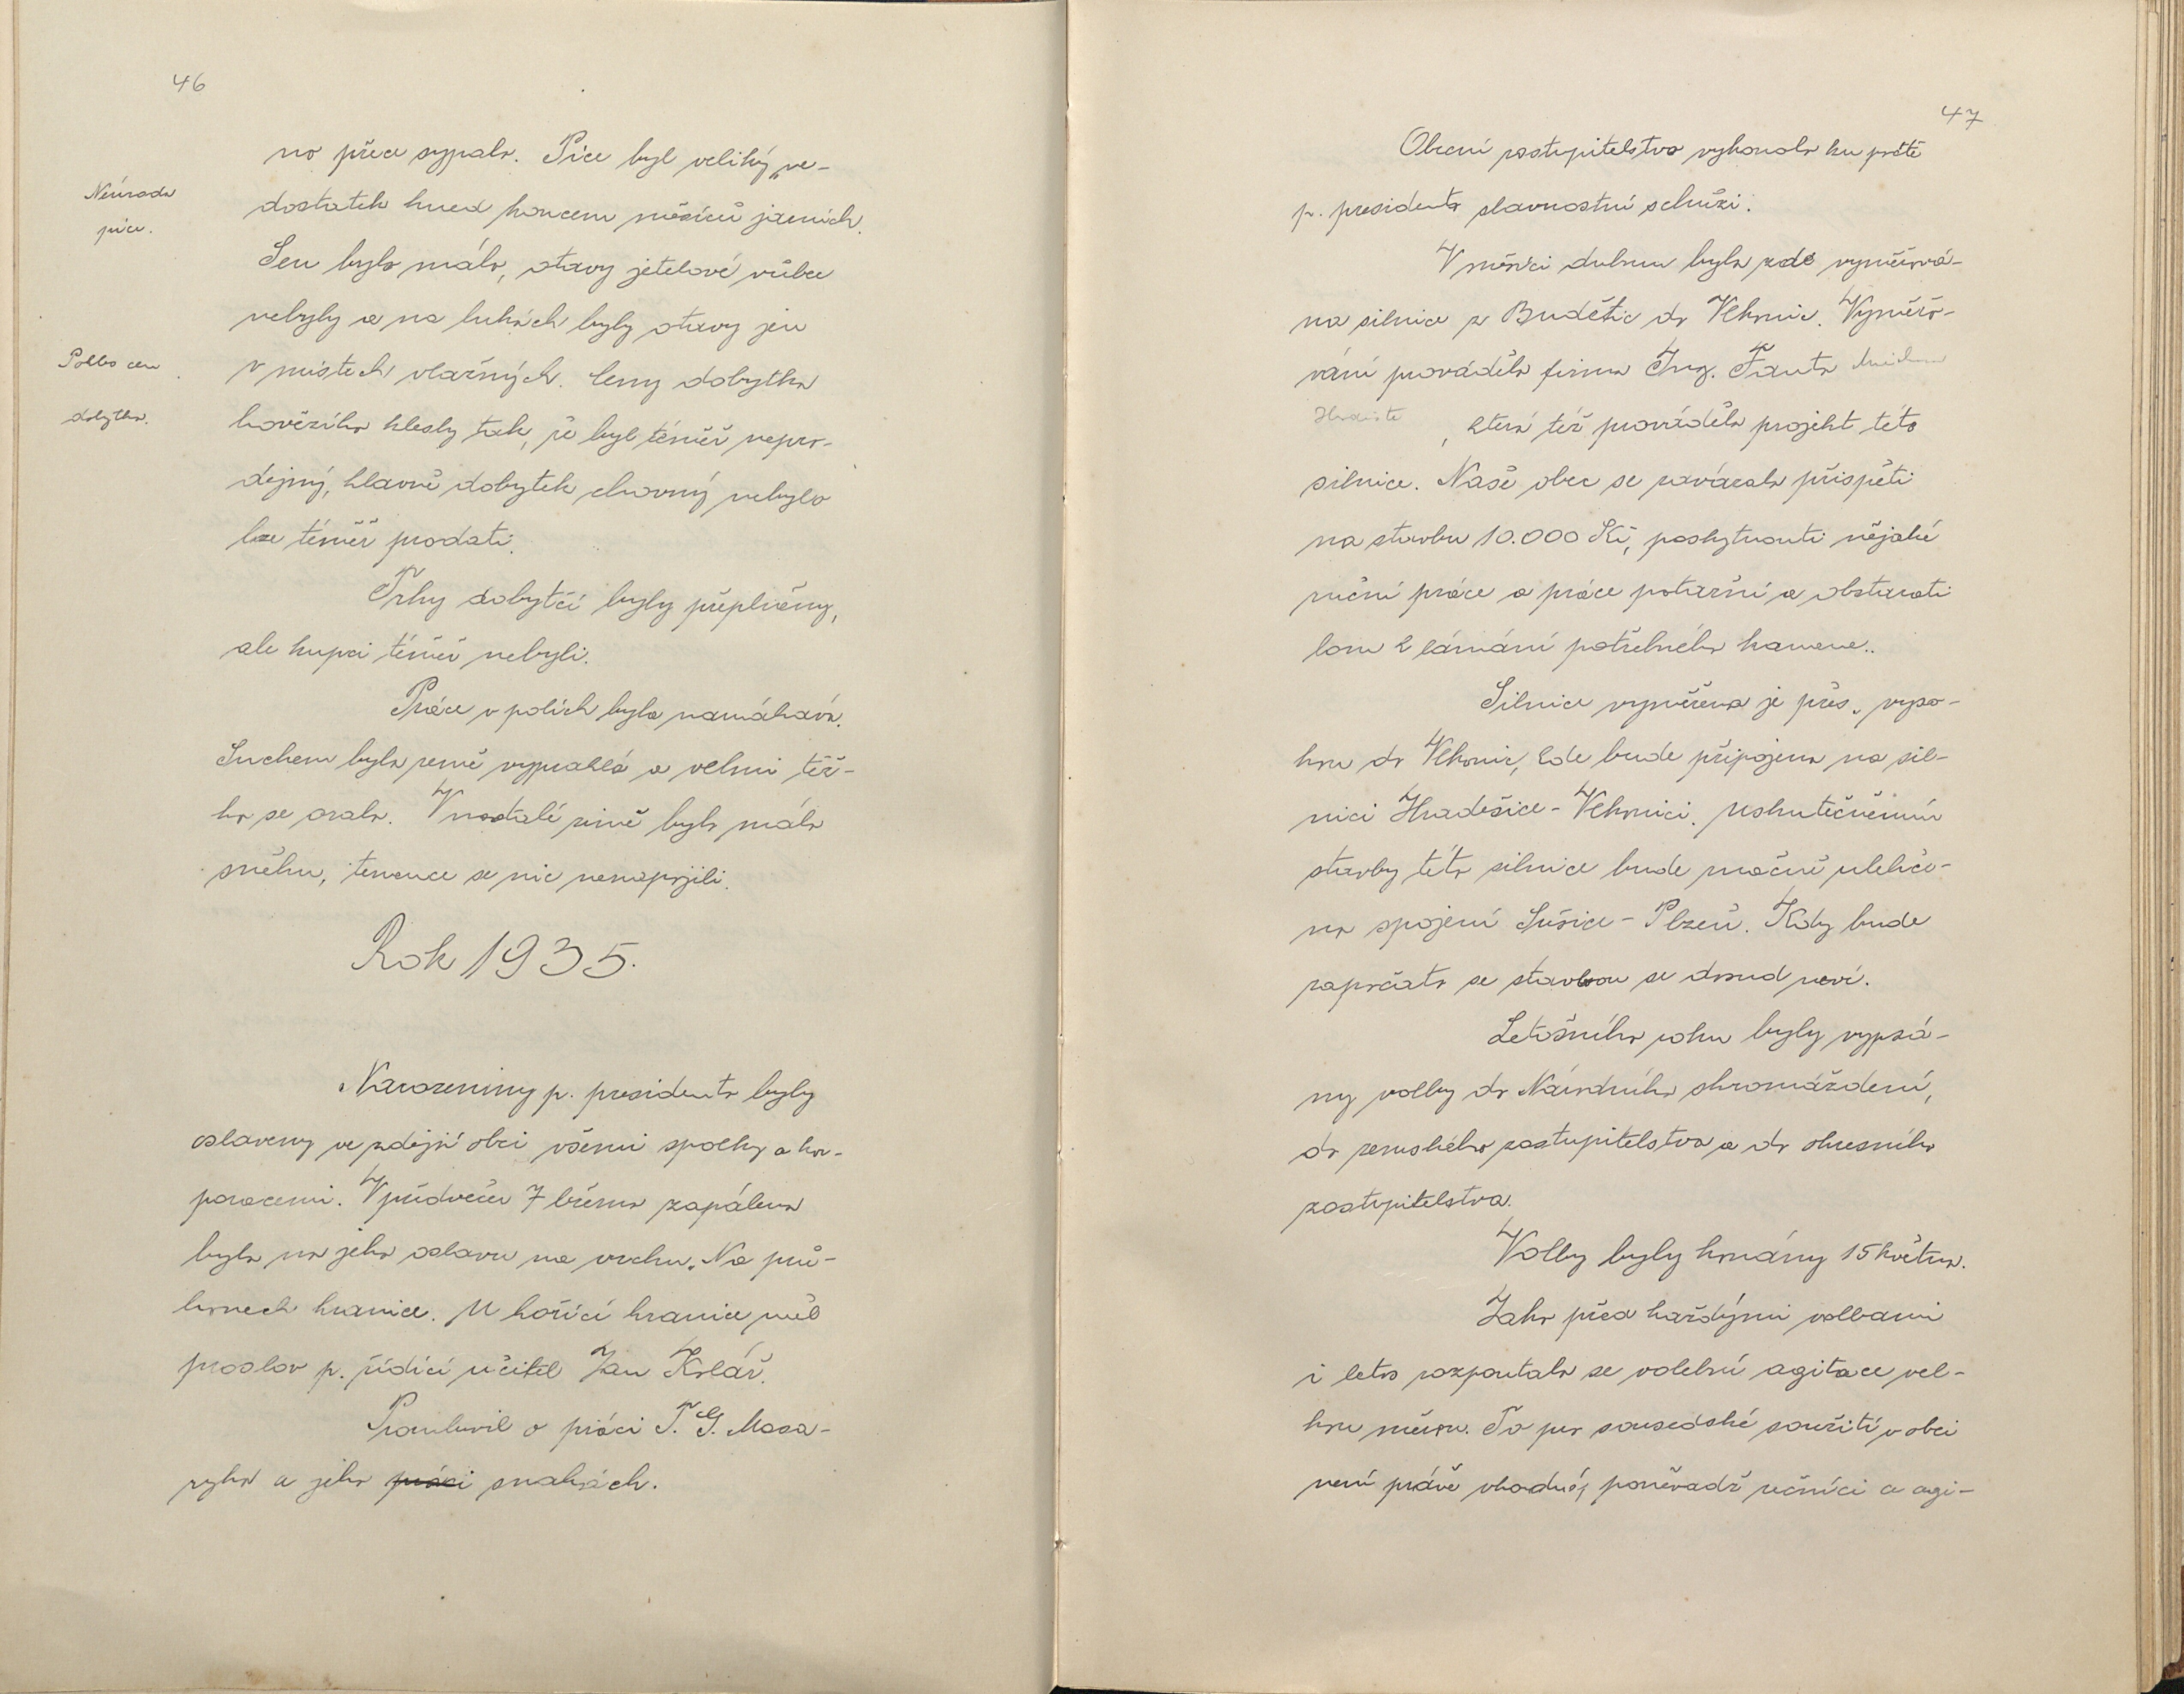 46
no přece sypalo. Píce byl veliký ne-
Neúroda
píce.
dostatek hned koncem měsíců jarních.
Sen bylo málo, otavy jetelové vůbec
nebyly a na lukách byly otavy jen
v místech vlažných. Ceny dobytka
dobytka.
hovězího klesly tak, že byl téměř nepro-
dejný, hlavně dobytek chovný nebylo
lze téměř prodati.
Trhy dobytčí byly přeplněny,
ale kupci téměř nebyli.
Práce v polích byla namáhavá.
Suchem byla země vyprahlá a velmi těž-
ko se oralo. V nastalé zimě bylo málo
sněhu, tenence se nic nenapojili.
Rok 1935.
Narozeniny p. presidenta byly
oslaveny ve zdejší obci všemi spolky a kor-
poracemi. V předvečer 7 března zapálena
byla na jeho oslavu na vrchu „Na prů-
honech hranice. U hořící hranice měl
proslov p. řídící učitel Jan Kolář.
Promluvil o práci T. G. Masa-
ryka a jeho práci snahách.
47
Obecní zastupitelstvo vykonalo ku poctě
p. presidenta slavnostní schůzi.
V měsíci dubnu byla zde vyměřová-
na silnice z Budětic do Vlkonic. Vyměřo-
vání prováděla firma Ing. Fanta
Hradiště, která též prováděla projekt této
silnice. Naše obec se zavázala přispěti
na stavbu 10.000 Kč, poskytnouti nějaké
ruční práce a práce potažní a obstarati
lom k lámání potřebného kamene..
Silnice vyměřena je přes „vyso-
kou do Vlkonic, kde bude připojena na sil-
nici Hradešice - Vlkonici. Uskutečněním
stavby této silnice bude značně ulehče-
no spojení Sušice - Plzeň. Kdy bude
započato se stavbou se dosud neví.
Letošního roku byly vypsá-
ny volby do Národního shromáždení,
do zemského zastupitelstva a do okresního
zastupitelstva.
Volby byly konány 15 května.
Jako před každými volbami
i letos rozpoutala se volební agitace vel-
kou měrou. To pro sousedské soužití v obci
není právě vhodné, poněvadž řečníci a agi-